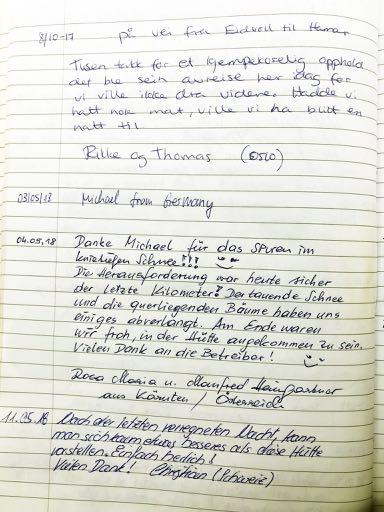 8/10-17 på vei fra Eidvoll til Hamar
Tusen takk for et kjempekoselig opphold
det ble sein avreise her idag for
vi ville ikke dra videre. Hadde vi
hatt nok mat, ville vi ha blitt en
natt til
Rikke og Thomas (OSLO)
03/05/18 Michael from Germany
04.05.18 Danke Michael für das Spuren im
kniehohen Schnee!!!
Die Herausforderung war heute sicher
der letzte Kilometer! Der tauende Schnee
und die querliegenden Bäume haben uns
einiges abverlangt. Am Ende waren
wir froh, in der Hütte angekommen zu sein.
Vielen Dank an die Betreiber!
Rosa Maria u. Manfred
aus Kärnten / Österreich
11.05.18 Nach der letzten verregneten Nacht, kann
man sich kaum etwas besseres als diese Hütte
vorstellen. Einfach herlich!
Vielen Dank! Christian (Schweiz)